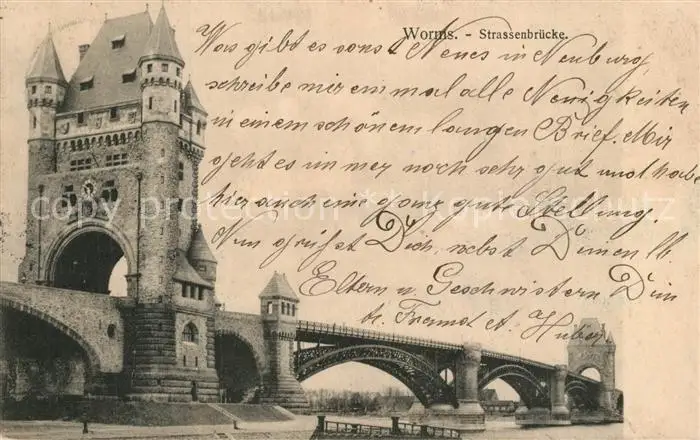 Worms. - Strassenbrücke.
Was gibt es sonst Neues in Neuburg,
schreibe mir einmal alle Neuigkeiten
in einem schönem langen Brief. Mir
geht es immer noch sehr gut und habe
hier auch eine ganz gute Stellung.
Nun grüßt Dich, nebst Deinen lb.
Eltern u. Geschwistern Dein
tr. Freund Huber
copyright protection for *